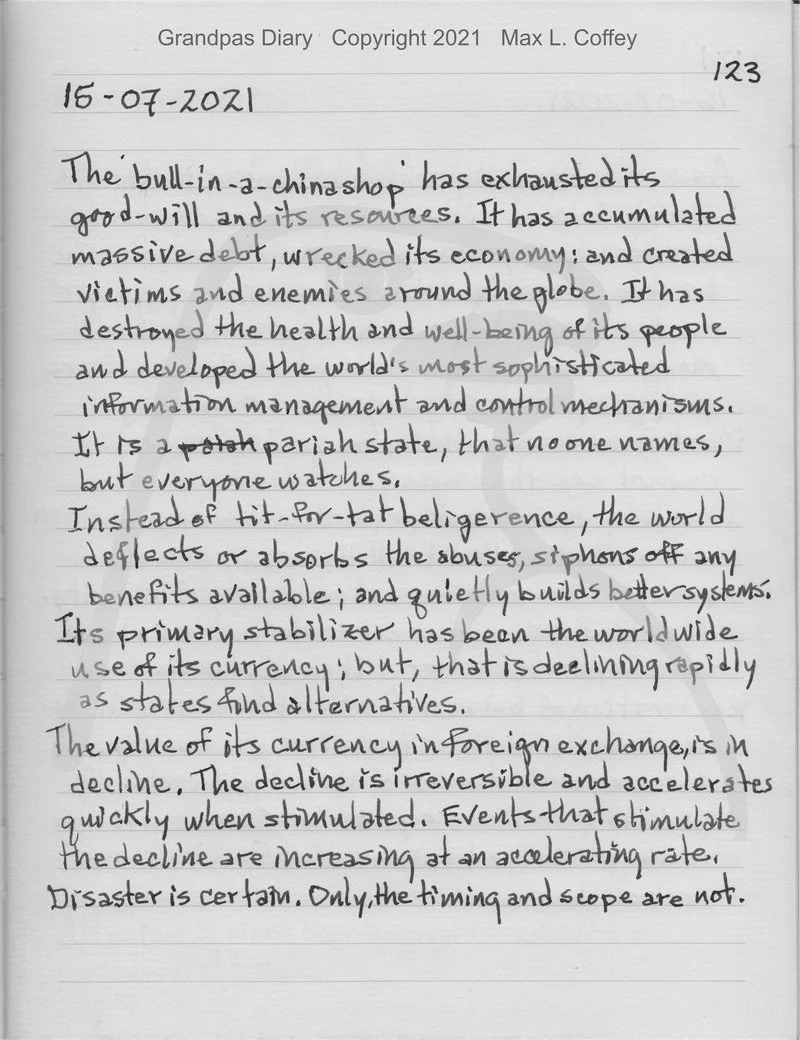 Grandpas Diary Copyright 2021 Max L. Coffey
123
15-07-2021
The 'bull-in-a-china shop' has exhausted its
good-will and its resources. It has accumulated
massive debt, wrecked its economy; and created
victims and enemies around the globe. It has
destroyed the health and well-being of its people
and developed the world's most sophisticated
information management and control mechanisms.
It is a pariah state, that no one names,
but everyone watches.
Instead of tit-for-tat beligerence, the world
deflects or absorbs the abuses, siphons off any
benefits available; and quietly builds better systems.
Its primary stabilizer has been the world wide
use of its currency; but, that is declining rapidly
as states find alternatives.
The value of its currency in foreign exchange, is in
decline. The decline is irreversible and accelerates
quickly when stimulated. Events that stimulate
the decline are increasing at an accelerating rate.
Disaster is certain. Only, the timing and scope are not.